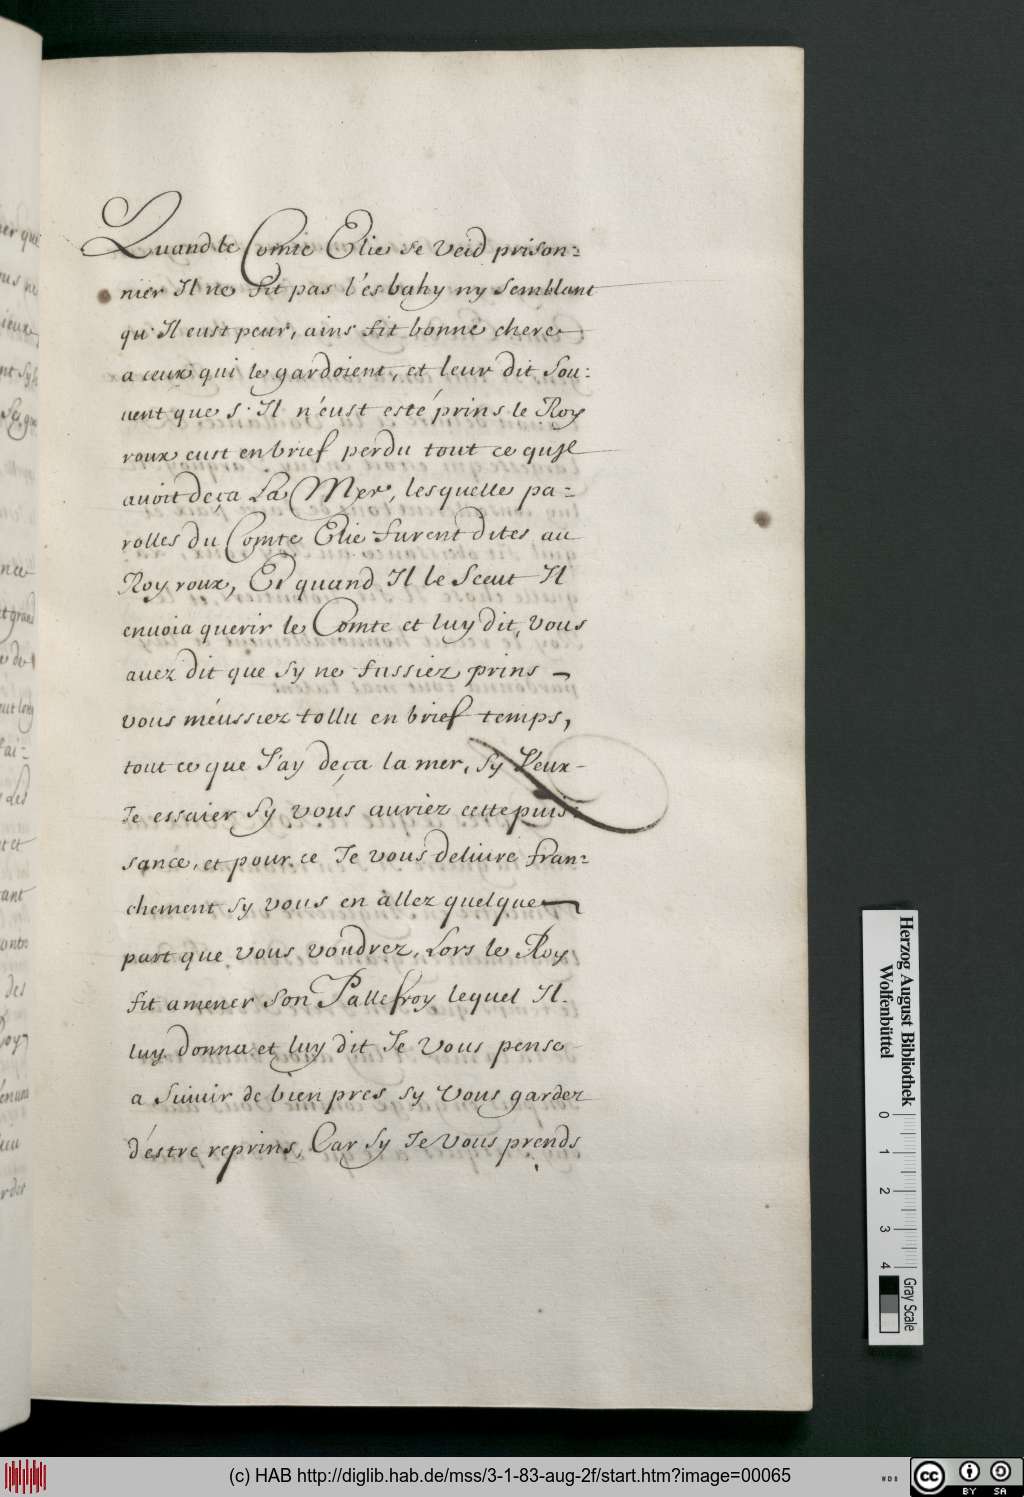 Quand le Comte Elie se veid prison=
nier Il ne fit pas l'ésbahy ny semblant
qu'Il eust peur, ains fit bonne chere
a ceux qui le gardoient, et leur dit sou=
uent que s'Il n'eust esté prins le Roy
roux eust en brief perdu tout ce qu'Il
auoit deça La Mer, lesquelle pa=
rolles du Comte Elie furent dites au
Roy roux, Et quand Il le Sceut Il
enuoia querir le Comte et luy dit, vous
auez dit que sy ne fussiez prins
vous méussiez tollu en brief temps,
tout ce que J'ay deça la mer, sy Veux-
Je essaier sy vous auriez cette puis=
sance, et pour ce Je vous deliure fran=
chement sy vous en allez quelque
part que vous voudrez, Lors le Roy
fit amener son Pallefroy lequel Il
luy donna et luy dit Je vous pense
a suiuir de bien pres sy vous gardez
d'éstre reprins, Car sy Je vous prends
Herzog August Bibliothek
Wolfenbüttel
0 1 2 3 4
Gray Scale
(c) HAB http://diglib.hab.de/mss/3-1-83-aug-2f/start.htm?image=00065
cc BY SA